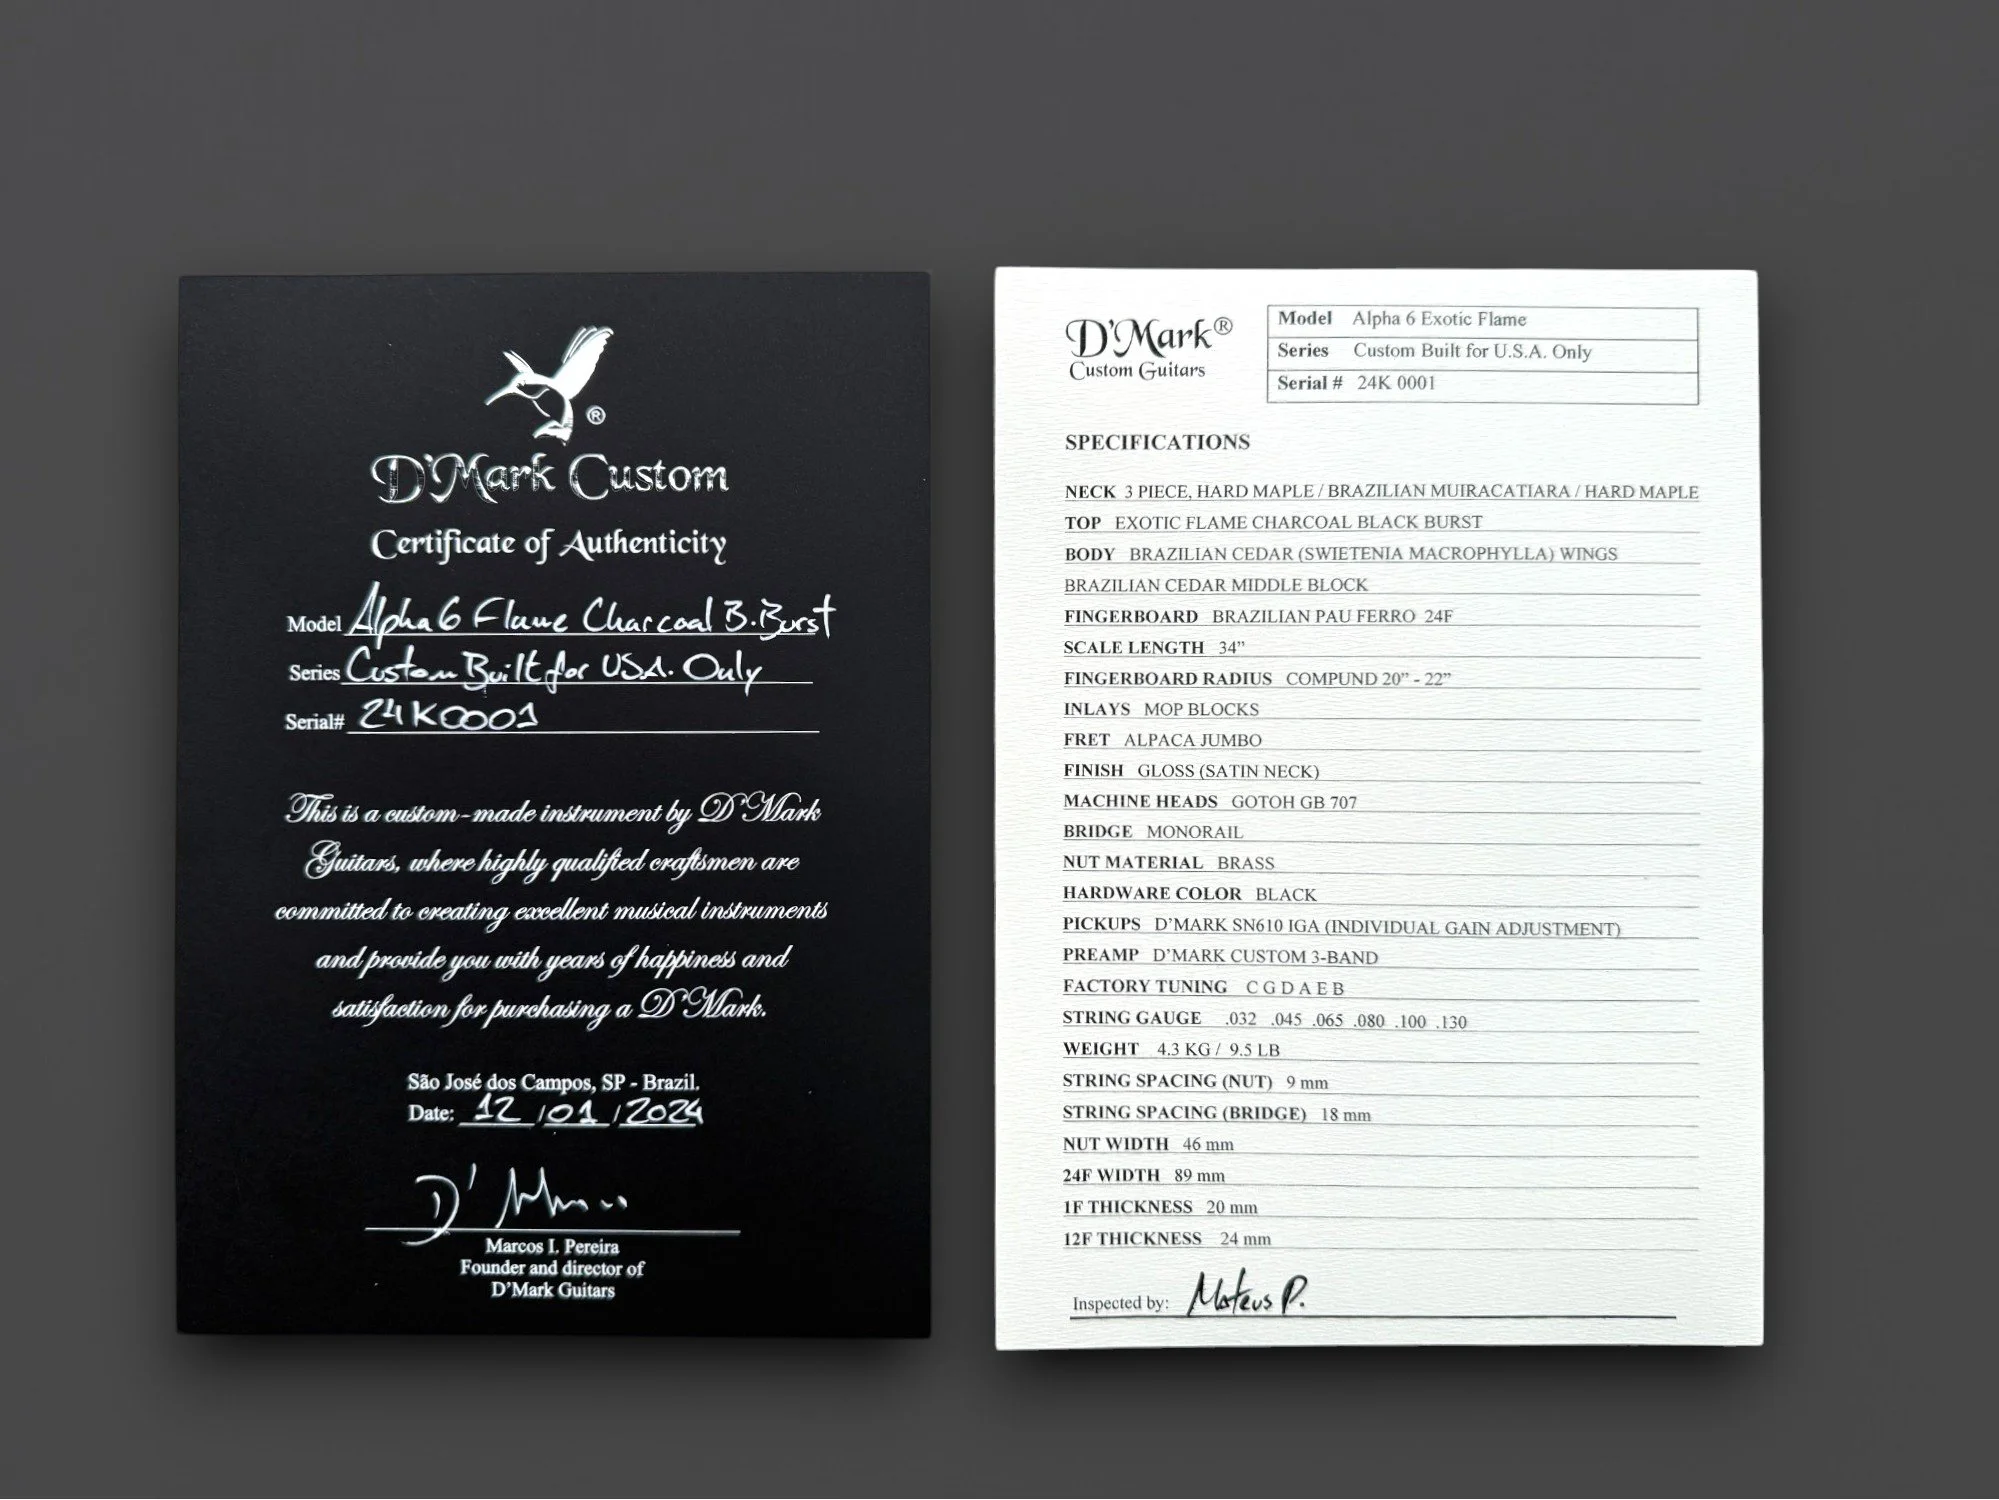 ®
D'Mark Custom
Certificate of Authenticity
Model Alpha 6 Flame Charcoal B.Burst
Series Custom Built for USA. Only
Serial# 24K0001
This is a custom-made instrument by D'Mark
Guitars, where highly qualified craftsmen are
committed to creating excellent musical instruments
and provide you with years of happiness and
satisfaction for purchasing a D'Mark.
São José dos Campos, SP - Brazil.
Date: 12/01/2024
Marcos I. Pereira
Founder and director of
D'Mark Guitars
D'Mark®
Custom Guitars
Model Alpha 6 Exotic Flame
Series Custom Built for U.S.A. Only
Serial # 24K 0001
SPECIFICATIONS
NECK 3 PIECE, HARD MAPLE / BRAZILIAN MUIRACATIARA / HARD MAPLE
TOP EXOTIC FLAME CHARCOAL BLACK BURST
BODY BRAZILIAN CEDAR (SWIETENIA MACROPHYLLA) WINGS
BRAZILIAN CEDAR MIDDLE BLOCK
FINGERBOARD BRAZILIAN PAU FERRO 24F
SCALE LENGTH 34”
FINGERBOARD RADIUS COMPUND 20” - 22”
INLAYS MOP BLOCKS
FRET ALPACA JUMBO
FINISH GLOSS (SATIN NECK)
MACHINE HEADS GOTOH GB 707
BRIDGE MONORAIL
NUT MATERIAL BRASS
HARDWARE COLOR BLACK
PICKUPS D'MARK SN610 IGA (INDIVIDUAL GAIN ADJUSTMENT)
PREAMP D'MARK CUSTOM 3-BAND
FACTORY TUNING C G D A E B
STRING GAUGE .032 .045 .065 .080 .100 .130
WEIGHT 4.3 KG / 9.5 LB
STRING SPACING (NUT) 9 mm
STRING SPACING (BRIDGE) 18 mm
NUT WIDTH 46 mm
24F WIDTH 89 mm
1F THICKNESS 20 mm
12F THICKNESS 24 mm
Inspected by: Mateus P.